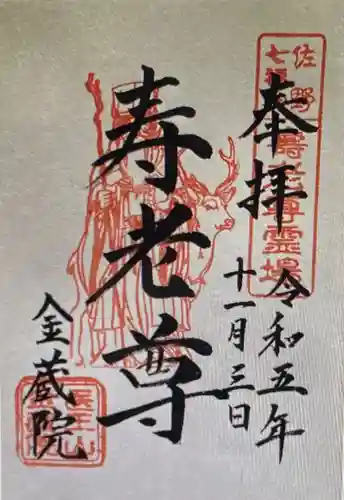 佐野
七福
壽老尊霊場
奉拝
令和五年
十一月三日
寿老尊
金蔵院